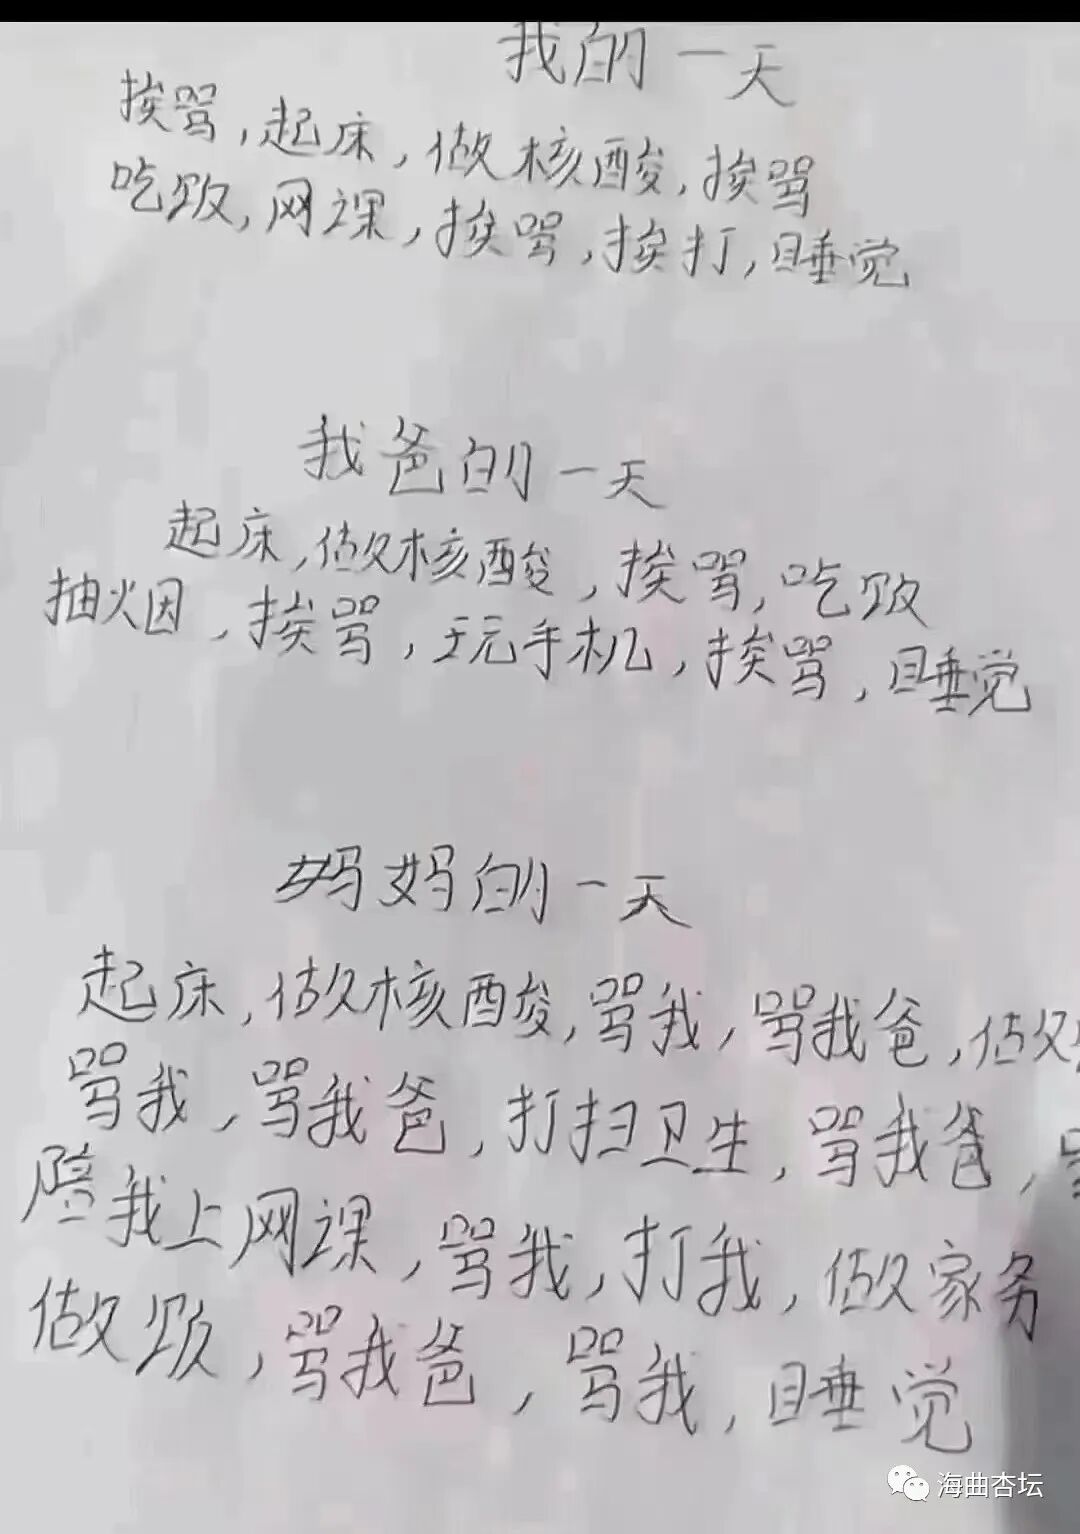 我的一天
挨骂,起床,做核酸,挨骂
吃饭,网课,挨骂,挨打,睡觉
我爸的一天
起床,做核酸,挨骂,吃饭
抽烟,挨骂,玩手机,挨骂,睡觉
妈妈的一天
起床,做核酸,骂我,骂我爸,做
骂我,骂我爸,打扫卫生,骂我爸,
陪我上网课,骂我,打我,做家务
做饭,骂我爸,骂我,睡觉
海曲杏坛